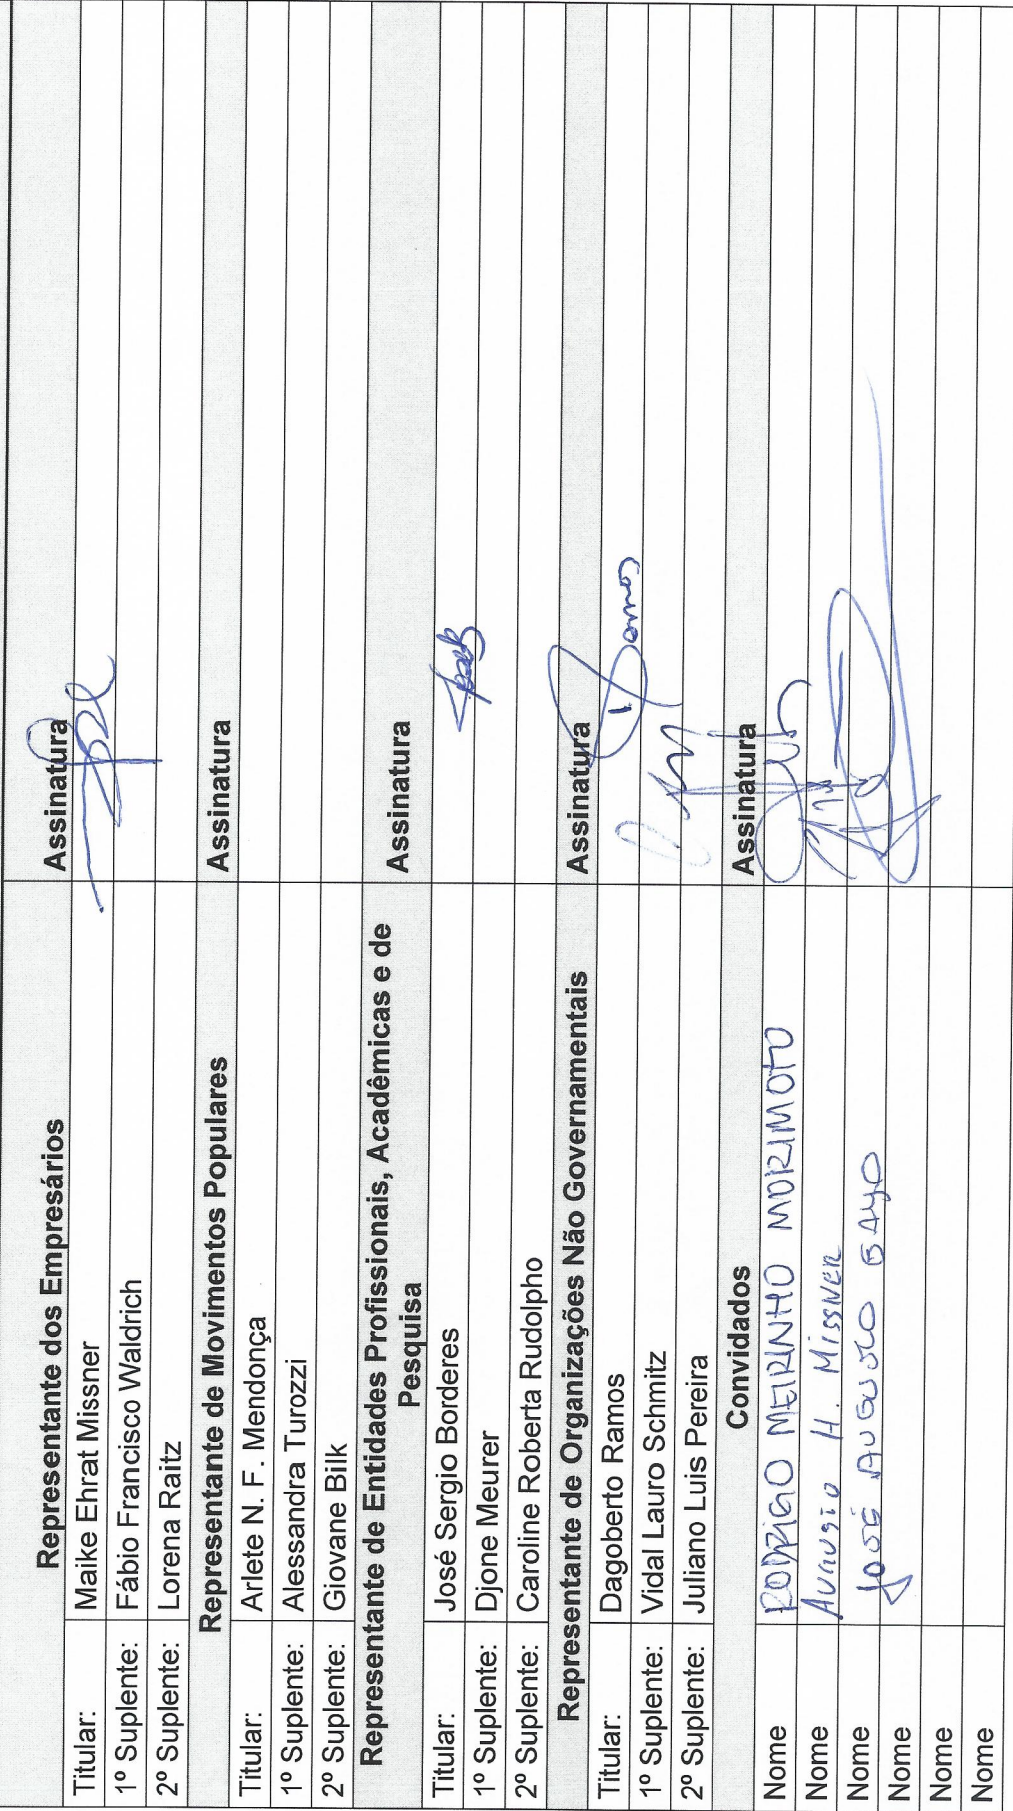 Representante dos Empresários Assinatura
Titular: Maike Ehrat Missner
1º Suplente: Fábio Francisco Waldrich
2º Suplente: Lorena Raitz
Representante de Movimentos Populares Assinatura
Titular: Arlete N. F. Mendonça
1º Suplente: Alessandra Turozzi
2º Suplente: Giovane Bilk
Representante de Entidades Profissionais, Acadêmicas e de
Pesquisa Assinatura
Titular: José Sergio Borderes
1º Suplente: Djone Meurer
2º Suplente: Caroline Roberta Rudolpho
Representante de Organizações Não Governamentais Assinatura
Titular: Dagoberto Ramos Ramos
1º Suplente: Vidal Lauro Schmitz
2º Suplente: Juliano Luis Pereira
Convidados Assinatura
Nome RODRIGO MEIRINHO MORIMOTO
Nome AUGUSTO H. MISSNER
Nome JOSÉ AUGUSTO BAYO
Nome
Nome
Nome